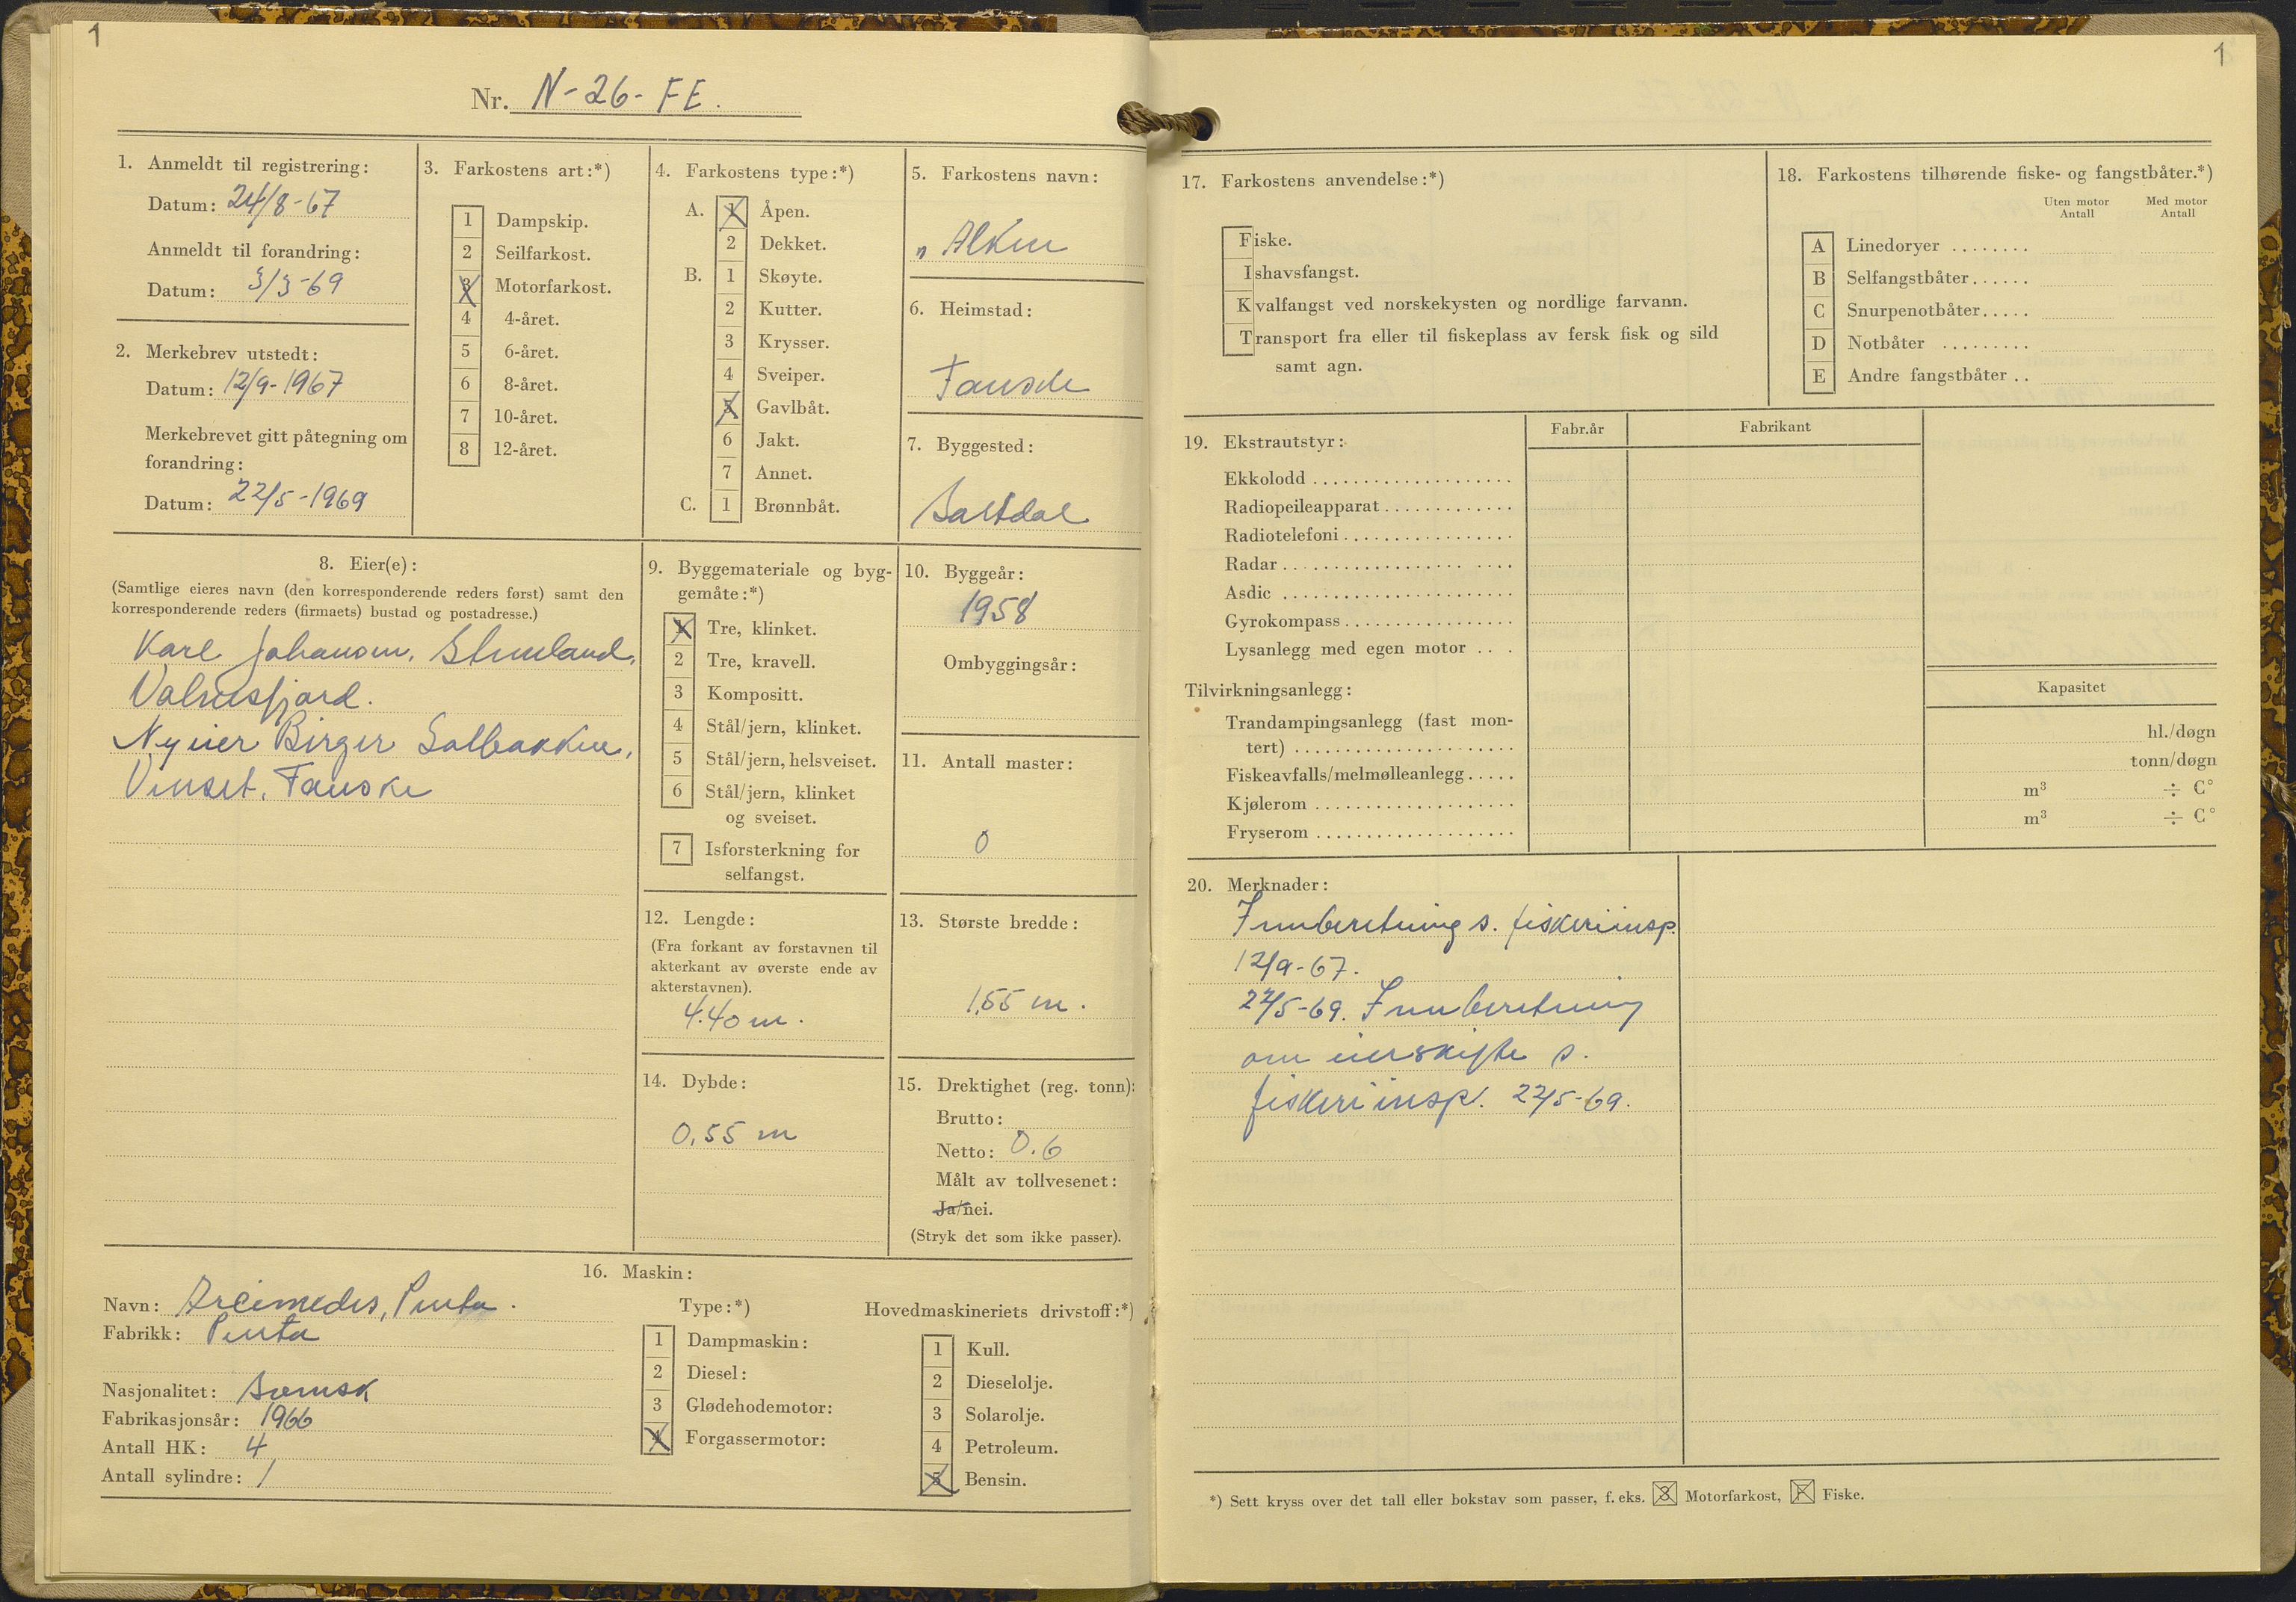 1
Nr. N-26-FE.
1. Anmeldt til registrering:
Datum: 24/8-67
Anmeldt til forandring:
Datum: 3/3-69
2. Merkebrev utstedt:
Datum: 12/9-1967
Merkebrevet gitt påtegning om
forandring:
Datum: 22/5-1969
3. Farkostens art:*)
1 Dampskip.
2 Seilfarkost.
3 Motorfarkost.
4 4-året.
5 6-året.
6 8-året.
7 10-året.
8 12-året.
4. Farkostens type:*)
A. 1 Åpen.
2 Dekket.
B. 1 Skøyte.
2 Kutter.
3 Krysser.
4 Sveiper.
5 Gavlbåt.
6 Jakt.
7 Annet.
C. 1 Brønnbåt.
5. Farkostens navn:
„Alken
6. Heimstad:
Fauske
7. Byggested:
Saltdal
8. Eier(e):
(Samtlige eieres navn (den korresponderende reders først) samt den
korresponderende reders (firmaets) bustad og postadresse.)
Karl Johansen,
Valnesfjord.
Ny eier Birger Solbakken,
Vinset, Fauske
9. Byggemateriale og byg-
gemåte:*)
1 Tre, klinket.
2 Tre, kravell.
3 Kompositt.
4 Stål/jern, klinket.
5 Stål/jern, helsveiset.
6 Stål/jern, klinket
og sveiset.
7 Isforsterkning for
selfangst.
10. Byggeår:
1958
Ombyggingsår:
11. Antall master:
0
12. Lengde:
(Fra forkant av forstavnen til
akterkant av øverste ende av
akterstavnen).
4.40 m.
13. Største bredde:
1,55 m.
14. Dybde:
0,55 m
15. Drektighet (reg. tonn):
Brutto:
Netto: 0.6
Målt av tollvesenet:
Ja/nei.
(Stryk det som ikke passer).
16. Maskin:
Navn: Arcimedes, Penta.
Fabrikk: Penta
Nasjonalitet: Svensk
Fabrikasjonsår: 1966
Antall HK: 4
Antall sylindre: 1
Type:*)
1 Dampmaskin:
2 Diesel:
3 Glødehodemotor:
4 Forgassermotor:
Hovedmaskineriets drivstoff:*)
1 Kull.
2 Dieselolje.
3 Solarolje.
4 Petroleum.
5 Bensin.
1
17. Farkostens anvendelse:*)
Fiske.
Ishavsfangst.
Kvalfangst ved norskekysten og nordlige farvann.
Transport fra eller til fiskeplass av fersk fisk og sild
samt agn.
18. Farkostens tilhørende fiske- og fangstbåter.*)
Uten motor Antall
Med motor Antall
A Linedoryer ........
B Selfangstbåter......
C Snurpenotbåter.....
D Notbåter .........
E Andre fangstbåter ..
19. Ekstrautstyr:
Fabr.år
Fabrikant
Ekkolodd ....................
Radiopeileapparat.............
Radiotelefoni.................
Radar.......................
Asdic .......................
Gyrokompass.................
Lysanlegg med egen motor ...
Tilvirkningsanlegg:
Kapasitet
Trandampingsanlegg (fast mon-
tert) ...................... hl./døgn
Fiskeavfalls/melmølleanlegg..... tonn/døgn
Kjølerom .................... m³ ÷ C°
Fryserom .................... m³ ÷ C°
20. Merknader:
Innberetning s. fiskeriinsp.
12/9-67.
22/5-69. Innberetning
om eierskifte s.
fiskeriinsp. 22/5-69.
*) Sett kryss over det tall eller bokstav som passer, f. eks. 3 Motorfarkost, F Fiske.